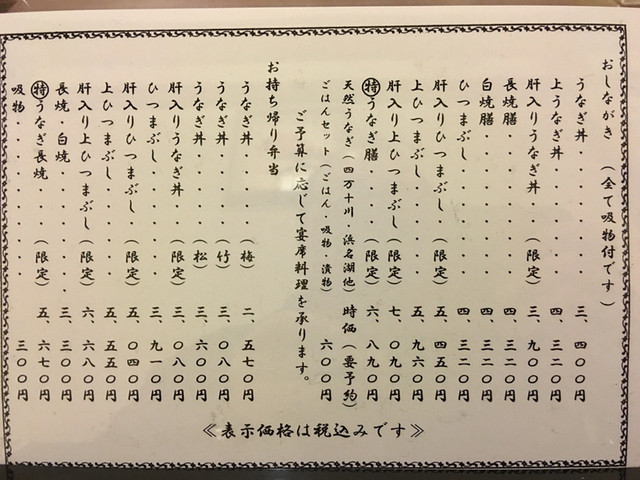 おしながき（全て吸物付です）
うなぎ丼・・・・・・三、四〇〇円
上うなぎ丼・・・・・・四、三二〇円
肝入りうなぎ丼・・（限定）三、九〇〇円
長焼膳・・・・・・四、三二〇円
白焼膳・・・・・・四、三二〇円
ひつまぶし・・・・・・四、三二〇円
肝入りひつまぶし・（限定）五、四五〇円
上ひつまぶし・・・・・五、九六〇円
肝入り上ひつまぶし（限定）七、〇九〇円
㊕うなぎ膳・・・（限定）六、八九〇円
天然うなぎ（四万十川・浜名湖他）時価（要予約）
ごはんセット（ごはん・吸物・漬物）六〇〇円
ご予算に応じて宴席料理を承ります。
お持ち帰り弁当
うなぎ丼・・・・（梅）二、五七〇円
うなぎ丼・・・・（竹）三、〇八〇円
うなぎ丼・・・・（松）三、六〇〇円
肝入りうなぎ丼・・（限定）三、〇八〇円
ひつまぶし・・・・・・三、九一〇円
肝入りひつまぶし・（限定）五、〇四〇円
上ひつまぶし・・・・・五、五五〇円
肝入り上ひつまぶし（限定）六、六八〇円
長焼・白焼・・・・・・三、三〇〇円
㊕うなぎ長焼・・（限定）五、六七〇円
吸物・・・・・・・・三〇〇円
≪表示価格は税込みです≫